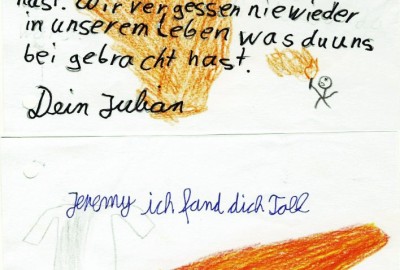 hast. Wir vergessen nie wieder
in unserem Leben was du uns
bei gebracht hast.
Dein Julian
Jeremy ich fand dich Toll